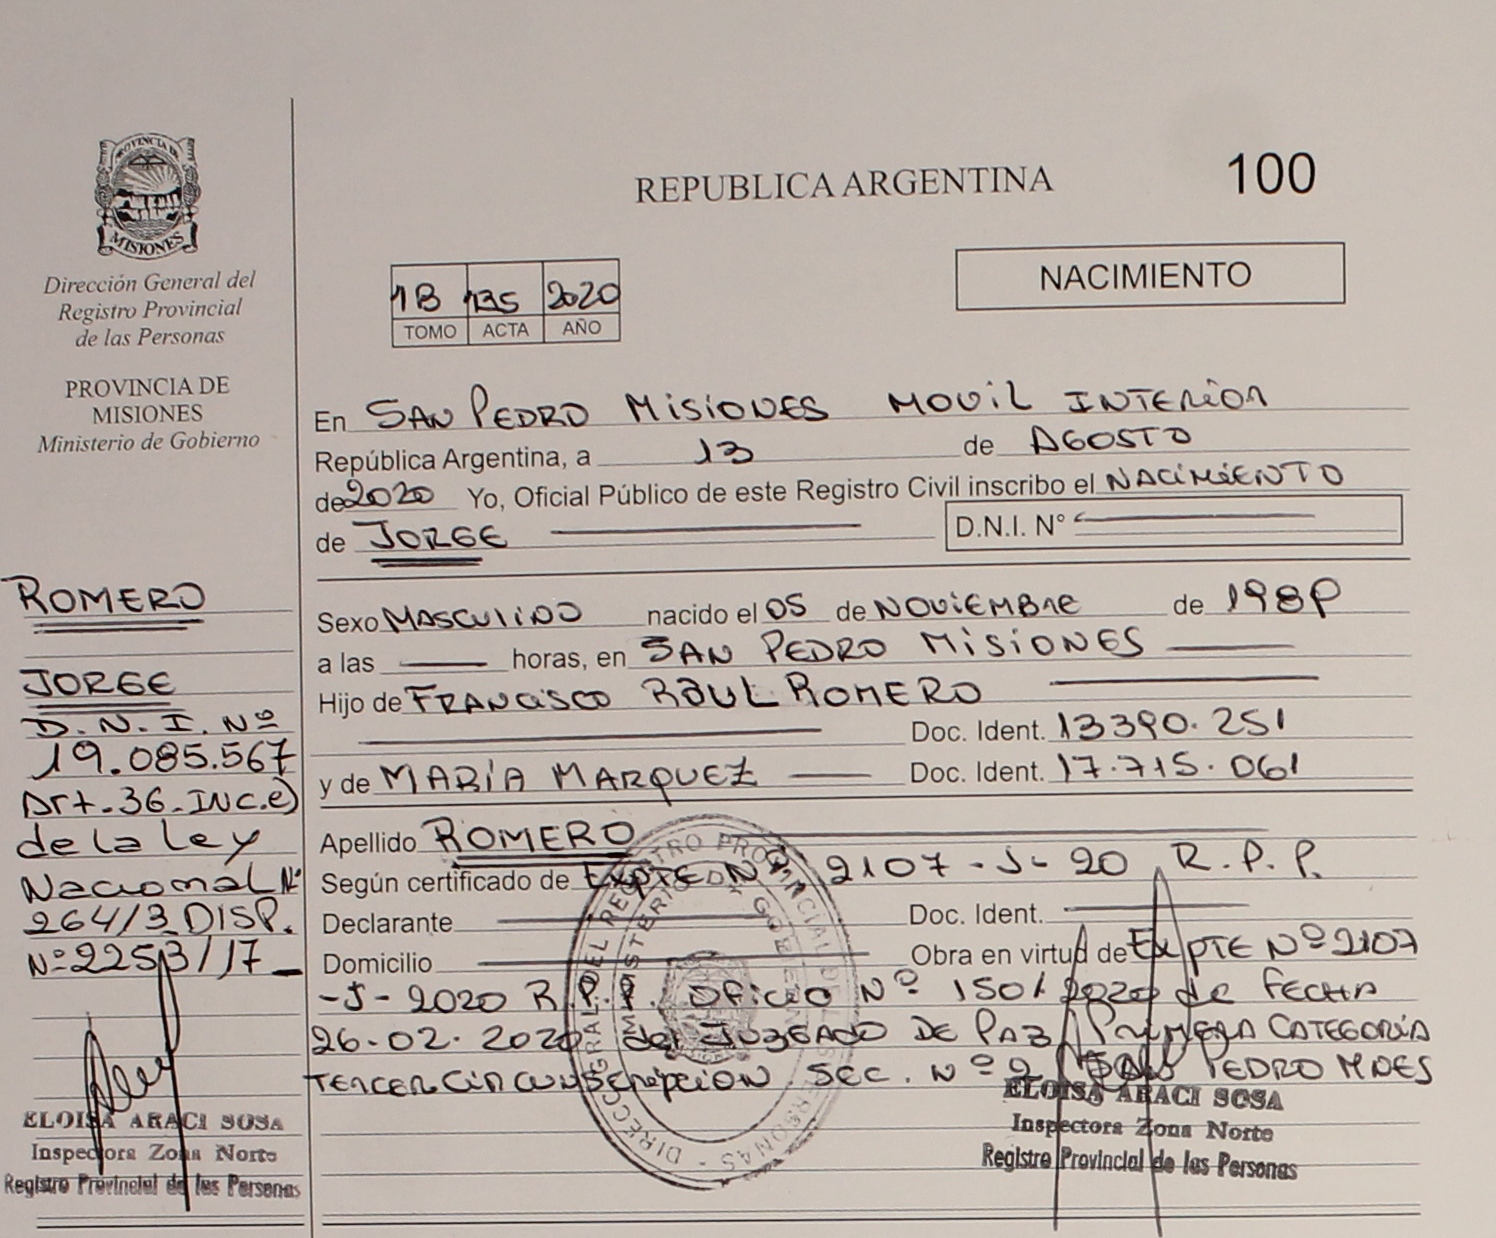 PROVINCIA DE
MISIONES
Dirección General del
Registro Provincial
de las Personas
PROVINCIA DE
MISIONES
Ministerio de Gobierno
ROMERO
JORGE
D.N.I. Nº
19.085.567
Art. 36 - INC. e)
de la Ley
Nacional Nº
264/3 DISP.
Nº 2253/17
ELOISA ARACI SOSA
Inspectora Zona Norte
Registro Provincial de las Personas
REPUBLICA ARGENTINA
100
NACIMIENTO
1B 135 2020
TOMO ACTA AÑO
En SAN PEDRO MISIONES MOVIL INTERIOR
República Argentina, a 13 de AGOSTO
de 2020 Yo, Oficial Público de este Registro Civil inscribo el NACIMIENTO
de JORGE D.N.I. Nº
Sexo MASCULINO nacido el 05 de NOVIEMBRE de 1989
a las horas, en SAN PEDRO MISIONES
Hijo de FRANCISCO RAUL ROMERO
Doc. Ident. 13390.251
y de MARÍA MARQUEZ Doc. Ident. 17.715.061
Apellido ROMERO
Según certificado de EXPTE Nº 2107 - J - 20 R.P.P.
Declarante Doc. Ident.
Domicilio Obra en virtud de EXPTE Nº 2107
-J- 2020 R.P.P. Oficio Nº 150/2020 de FECHA
26-02-2020 del JUZGADO DE PAZ PRIMERA CATEGORÍA
TERCER CIRCUNSCRIPCION SEC. Nº 2 SAN PEDRO MNES
ELOISA ARACI SOSA
Inspectora Zona Norte
Registro Provincial de las Personas